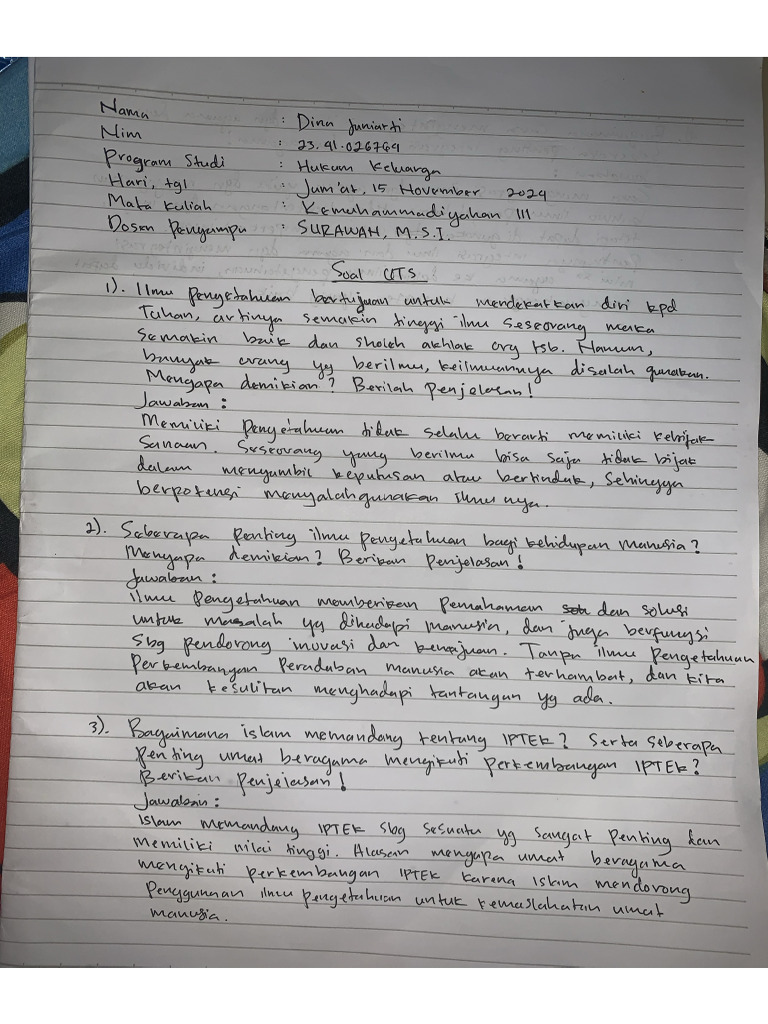 Nama : Dina Juniarti
Nim : 23.41.026764
Program Studi : Hukum Keluarga
Hari, tgl : Jum'at, 15 November 2024
Mata Kuliah : Kemuhammadiyahan III
Dosen Pengampu : SURAWAN, M.S.I.
Soal UTS
1). Ilmu Pengetahuan bertujuan untuk mendekatkan diri kpd
Tuhan, artinya semakin tinggi ilmu seseorang maka
semakin baik dan sholeh akhlak org tsb. Namun,
banyak orang yg berilmu, keilmuannya disalah gunakan.
Mengapa demikian? Berilah Penjelasan!
Jawaban :
Memiliki Pengetahuan tidak selalu berarti memiliki kebijak
sanaan. Seseorang yang berilmu bisa saja tidak bijak
dalam mengambil keputusan atau bertindak, sehingga
berpotensi menyalahgunakan ilmu nya.
2). Seberapa Penting ilmu pengetahuan bagi kehidupan manusia?
Mengapa demikian? Berikan Penjelasan!
Jawaban :
Ilmu Pengetahuan memberikan Pemahaman dan solusi
untuk masalah yg dihadapi manusia, dan juga berfungsi
sbg pendorong inovasi dan kemajuan. Tanpa ilmu Pengetahuan
Perkembangan Peradaban manusia akan terhambat, dan kita
akan kesulitan menghadapi tantangan yg ada.
3). Bagaimana islam memandang tentang IPTEK? Serta seberapa
Penting umat beragama mengikuti perkembangan IPTEK?
Berikan Penjelasan!
Jawaban :
Islam memandang IPTEK sbg sesuatu yg sangat penting dan
memiliki nilai tinggi. Alasan mengapa umat beragama
mengikuti perkembangan IPTEK karena Islam mendorong
Penggunaan ilmu pengetahuan untuk kemaslahatan umat
manusia.